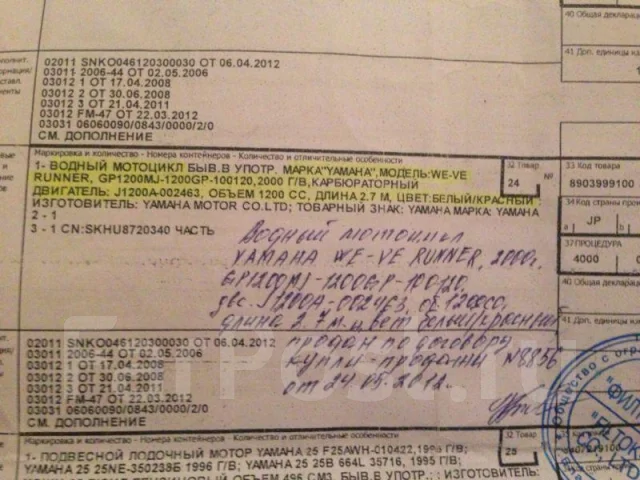 полнит.
02011 SNKO046120300030 ОТ 06.04.2012
03011 2006-44 ОТ 02.05.2006
03012 1 ОТ 17.04.2008
03012 2 ОТ 30.06.2008
03012 3 ОТ 21.04.2011
03012 FM-47 ОТ 22.03.2012
03031 06060090/0843/0000/2/0
СМ. ДОПОЛНЕНИЕ
40 Общая деклара
41 Доп. единицы
Маркировка и количество - Номера контейнеров - Количество и отличительные особенности
1- ВОДНЫЙ МОТОЦИКЛ БЫВ.В УПОТР. МАРКА"YAMAHA",МОДЕЛЬ:WE-VE
RUNNER, GP1200MJ-1200GP-100120,2000 Г/В,КАРБЮРАТОРНЫЙ
ДВИГАТЕЛЬ: J1200A-002463, ОБЪЕМ 1200 СС, ДЛИНА 2.7 М, ЦВЕТ:БЕЛЫЙ/КРАСНЫЙ
ИЗГОТОВИТЕЛЬ: YAMAHA MOTOR CO.LTD; ТОВАРНЫЙ ЗНАК: YAMAHA МАРКА: YAMAHA
2 - 1
3 - 1 CN:SKHU8720340 ЧАСТЬ
32 Товар
24 №
33 Код товара
8903999100
34 Код страны
JP
37 ПРОЦЕДУРА
4000
40 Общая
41 Доп.
Водный мотоцикл
YAMAHA WE-VE RUNNER, 2000г.
GP1200MJ-1200GP-100120,
двс. J1200A-002463, об. 1200СС,
длина 2.7 м. цвет белый/красный
продан по договору
купли-продажи №8856
от 24.05.2012.
02011 SNKO046120300030 ОТ 06.04.2012
03011 2006-44 ОТ 02.05.2006
03012 1 ОТ 17.04.2008
03012 2 ОТ 30.06.2008
03012 3 ОТ 21.04.2011
03012 FM-47 ОТ 22.03.2012
03031 06060090/0843/0000/2/0
СМ. ДОПОЛНЕНИЕ
Маркировка и количество - Номера контейнеров - Количество и отличительные особенности
1- ПОДВЕСНОЙ ЛОДОЧНЫЙ МОТОР YAMAHA 25 F25AWH-010422,1995 Г/В;
YAMAHA 25 25NE-350238Б 1996 Г/В; YAMAHA 25 25В 664L 35716, 1995 Г/В;
32 Товар
25
Общество с огр